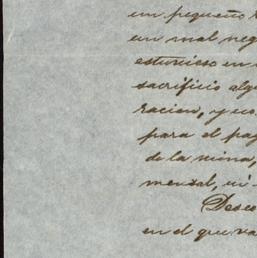 un pequeño
un mal neg
estuviese en
sacrificio algu
racion, y no
para el pag
de la mina,
mensal, ni
Deseo
en el que va